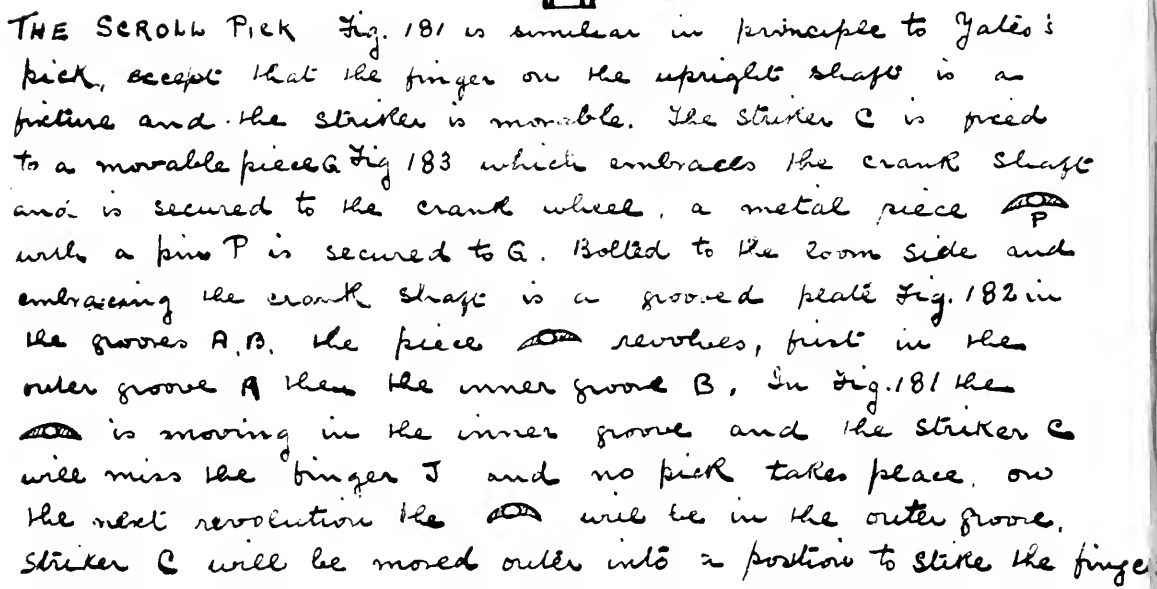 THE SCROLL PICK Fig. 181 is similar in principle to Yates's
pick, except that the finger on the upright shaft is a
fixture and the striker is movable. The striker C is fixed
to a movable piece G Fig 183 which embraces the crank shaft
and is secured to the crank wheel, a metal piece P
with a pin P is secured to G. Bolted to the loom side and
embracing the crank shaft is a grooved plate Fig. 182 in
the grooves A.B. the piece revolves, first in the
outer groove A then the inner groove B. In Fig. 181 the
is moving in the inner groove and the striker C
will miss the finger J and no pick takes place, on
the next revolution the will be in the outer groove.
Striker C will be moved outer into a position to stike the finge